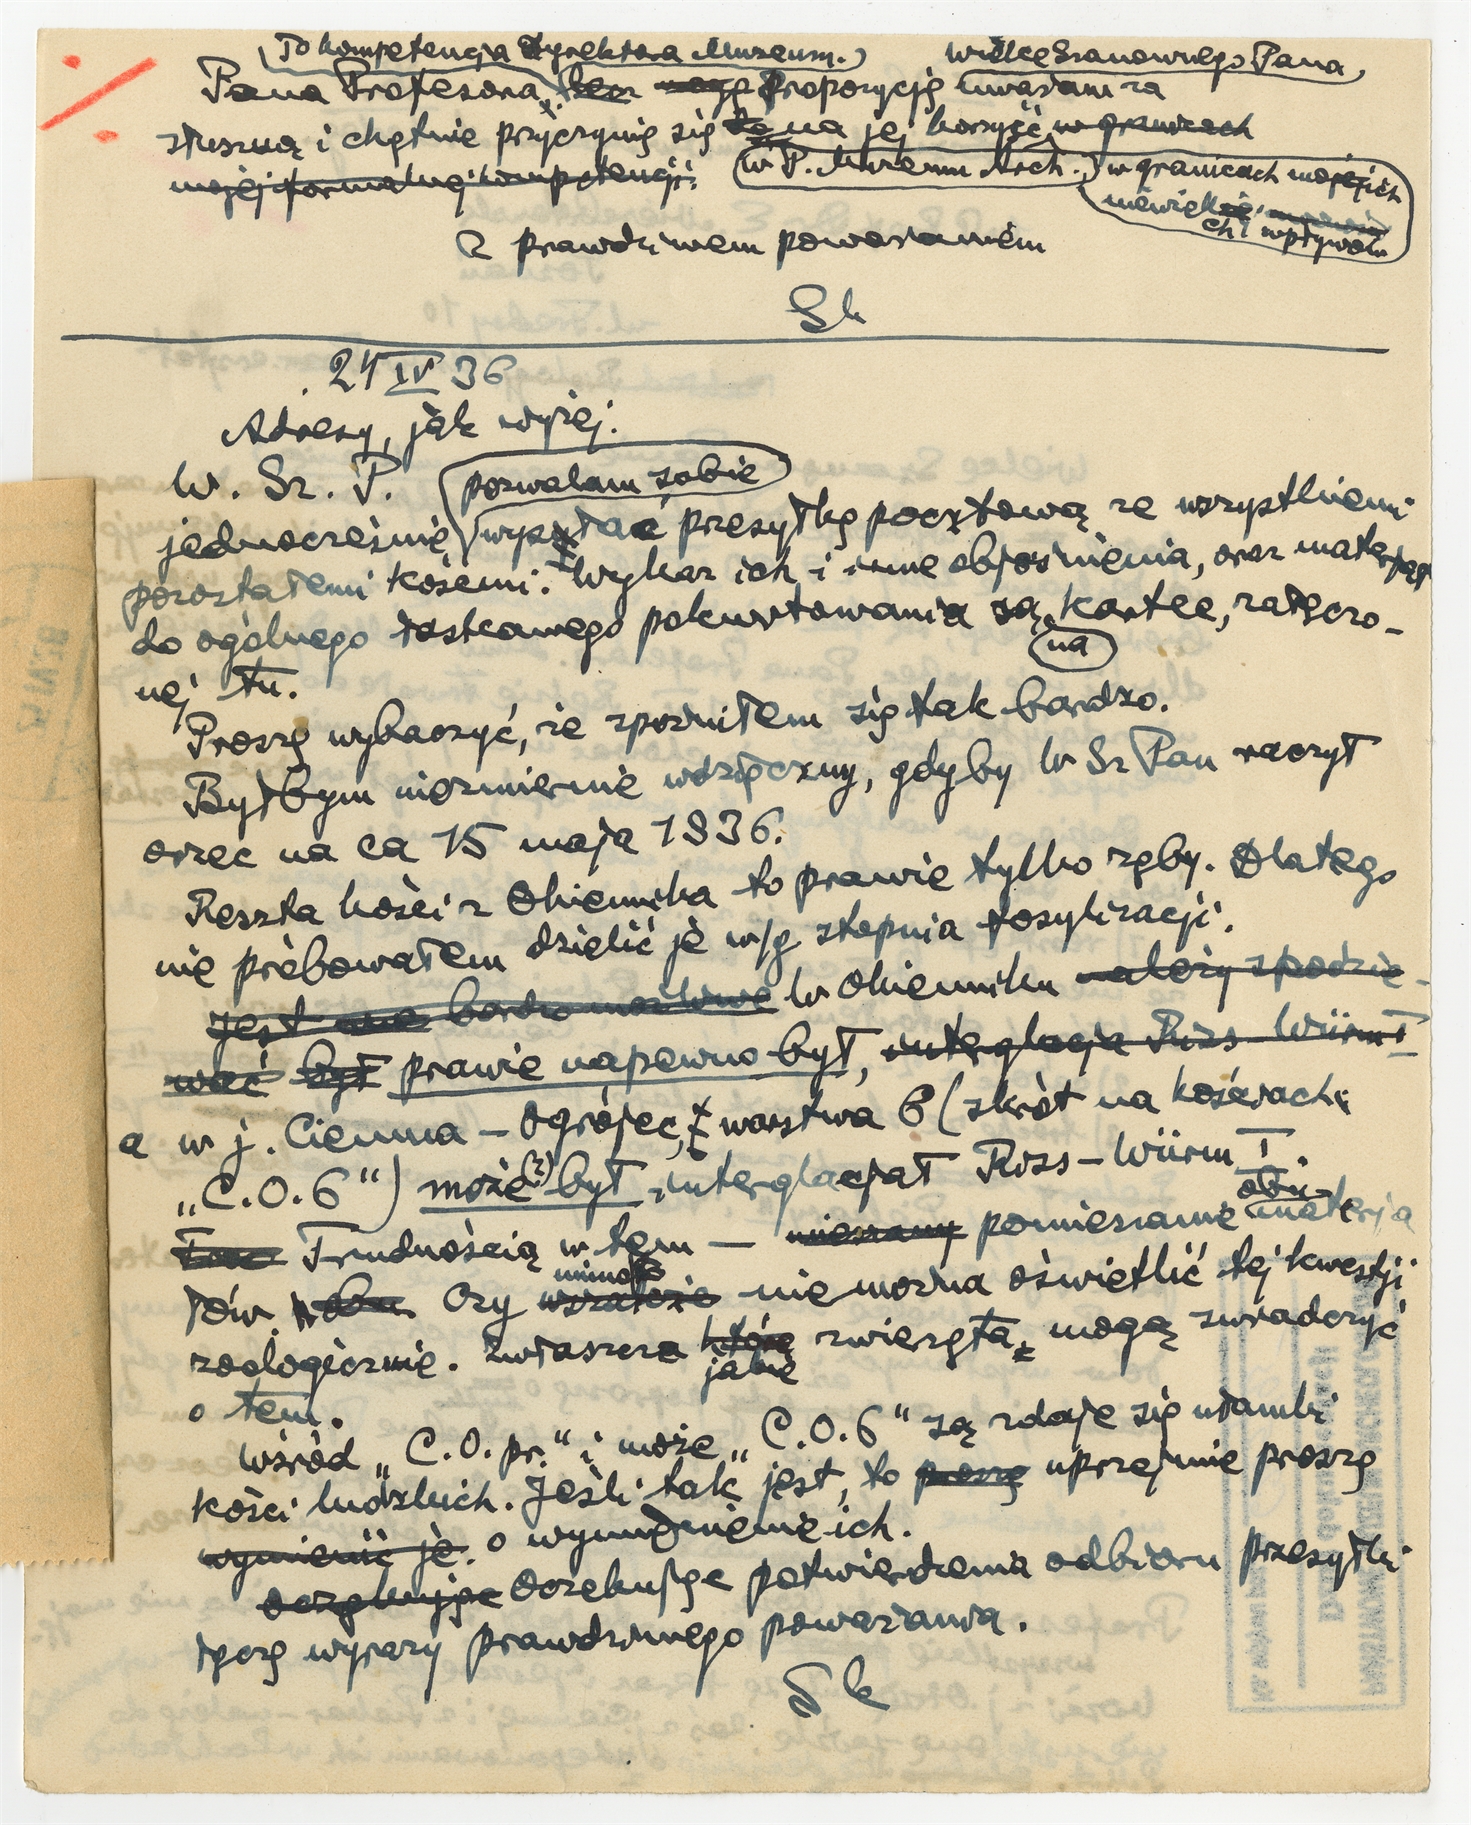 (To kompetencja Dyrektora Muzeum.) Wielce Szanownego Pana
Pana Profesora. Propozycję uważam za
słuszną i chętnie przyczynię się to na jej korzyść w granicach
mojej formalnej kompetencji. w P. Muzeum Arch. w granicach mojejich
niewielkich
wpływów
Z prawdziwem poważaniem
Sk
24 IV 36
Adresy, jak wyżej.
W. Sz. P. pozwalam sobie
jednocześnie wysłać przesyłkę pocztową ze wszystkiemi
pozostałemi kośćmi. Wykaz ich i inne objaśnienia, oraz materjał
do ogólnego łaskawego pokwitowania są kartce, załączo-
na
nej tu.
Proszę wybaczyć, że spóźniłem się tak bardzo.
Byłbym niezmiernie wdzięczny, gdyby W Sz Pan raczył
orzec na ca 15 maja 1936.
Reszta kości z Okiennika to prawie tylko zęby. Dlatego
nie próbowałem dzielić je w/g stopnia fosylizacji.
Jest ono bardzo możliwe W Okienniku należy spodzie-
wać był prawie napewno był, interglacja Riss-Würm I
a w j. Ciemna – Ogrójec, warstwa 6 (skrót na kościach:
„C.O.6“) może (?) był interglacjał Riss–Würm I.
obu
Trudnością w tem — mieszany pomieszanie materja
mimo to
łów obu. Czy nie można oświetlić tej kwestji
zoologicznie. Zwłaszcza które zwierzęta mogą świadczyć
jakie
o tem.
Wśród „C.O.pr.“ i może „C.O.6“ są zdaje się ułamki
kości ludzkich. Jeśli tak jest, to proszę uprzejmie proszę
wymienić je. o wymienienie ich.
oczekując Oczekując potwierdzenia odbioru przesyłki
łączę wyrazy prawdziwego poważania.
Sk